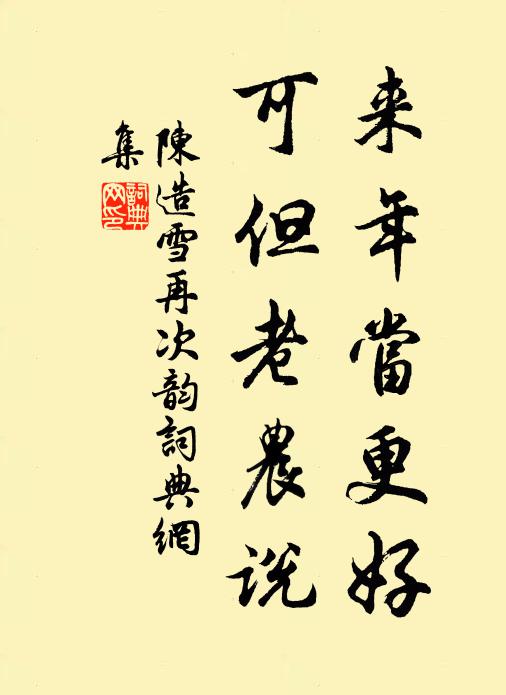 来年當更好
可但老農说
陳造雪再次韵詞典網
集
詞典网印